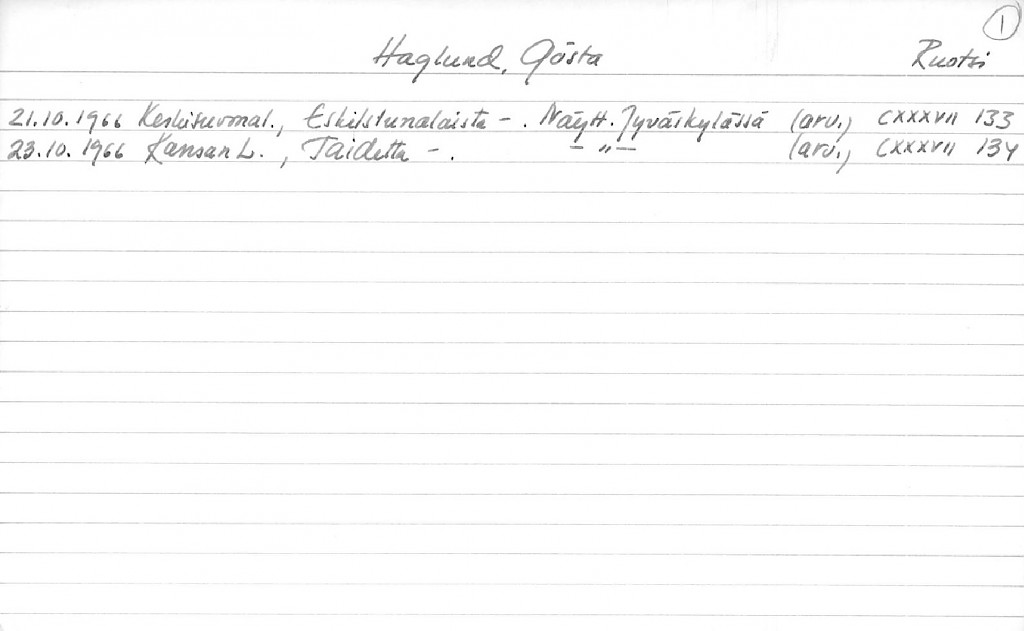 1
Haglund, Gösta Ruotsi
21.10.1966 Keskisuomal., Eskilstunalaista - . Näytt. Jyväskylässä (arv.) CXXXVII 133
23.10.1966 Kansan L., Taidetta - . - " - (arv.) CXXXVII 134